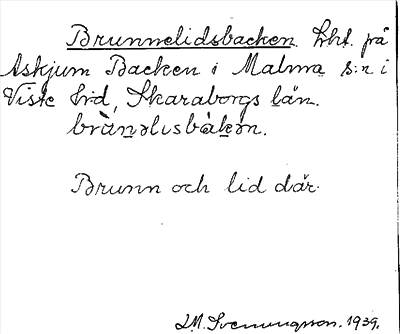 Brunnelidsbacken. Lht. på
Askjum Backen i Malma s:n i
Viste hd, Skaraborgs län.
brànəlisbàkən.
Brunn och lid där.
J.M. Svenungsson. 1939.